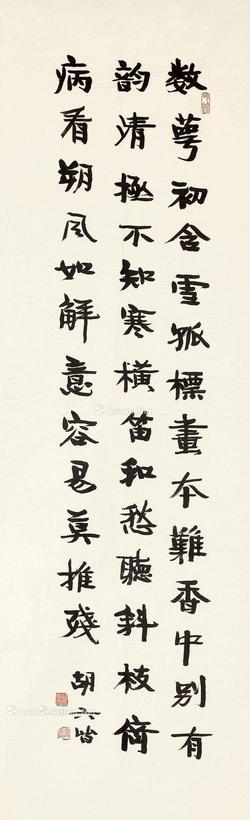 数萼初含雪孤標畫本難香中別有
韵清極不知寒橫笛和愁聽斜枝倚
病看朔风如解意容易莫推殘
胡六皆